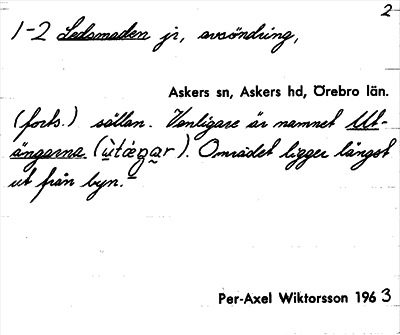 2
1-2 Ledsmaden jr, avsöndring,
Askers sn, Askers hd, Örebro län.
(forts.) sällan. Vanligare är namnet Ut-
ängarna (ùtǽŋar). Området ligger längst
ut från byn.
Per-Axel Wiktorsson 1963